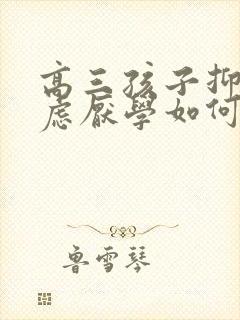 高三孩子抑
虑厌學如何
鲁雪琴